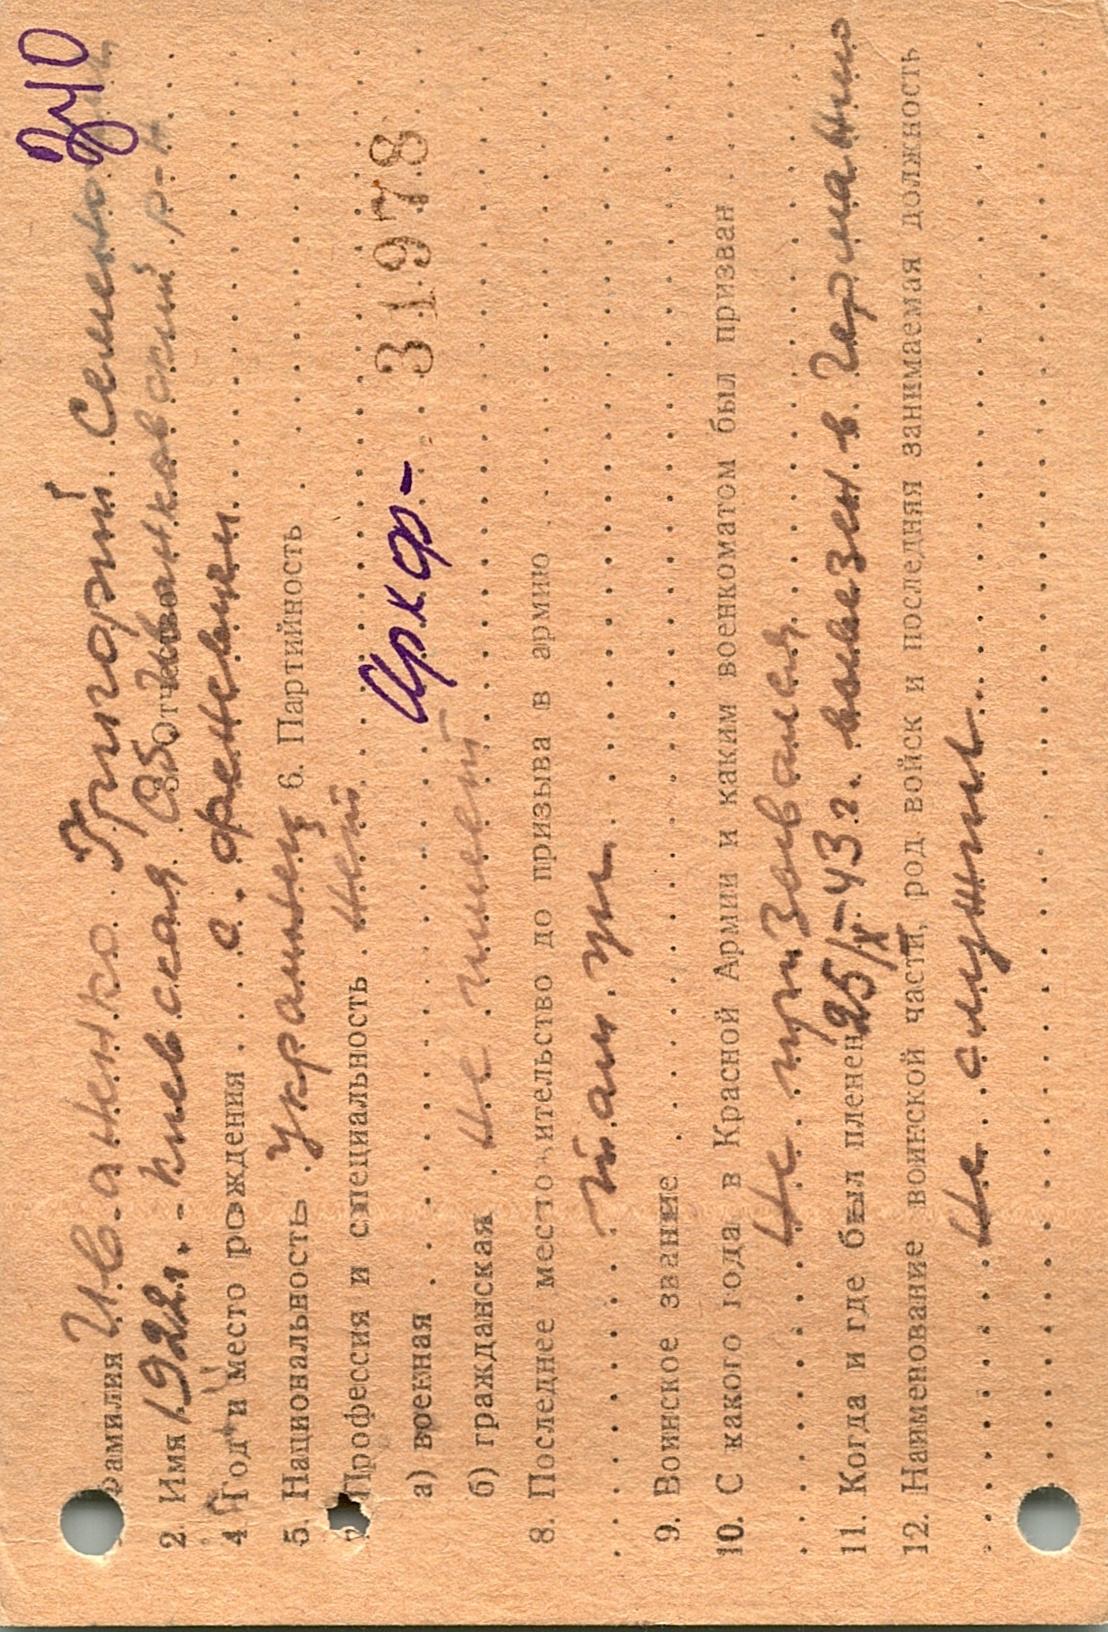 240
Фамилия Иваненко Григорий Семенович
2. Имя 3. Отчество
1922 г. - Киевская обл. р-н
4 Год и место рождения с.
5. Национальность Украинец 6. Партийность
7. Профессия и специальность нет
а) военная Аркф- 31978
б) гражданская не имеет
8. Последнее местожительство до призыва в армию
там же
9. Воинское звание
10. С какого года в Красной Армии и каким военкоматом был призван
Не призывался
11. Когда и где был пленен 25/X-43 г. вывезен в Германию
12. Наименование воинской части, род войск и последняя занимаемая должность
Не служил